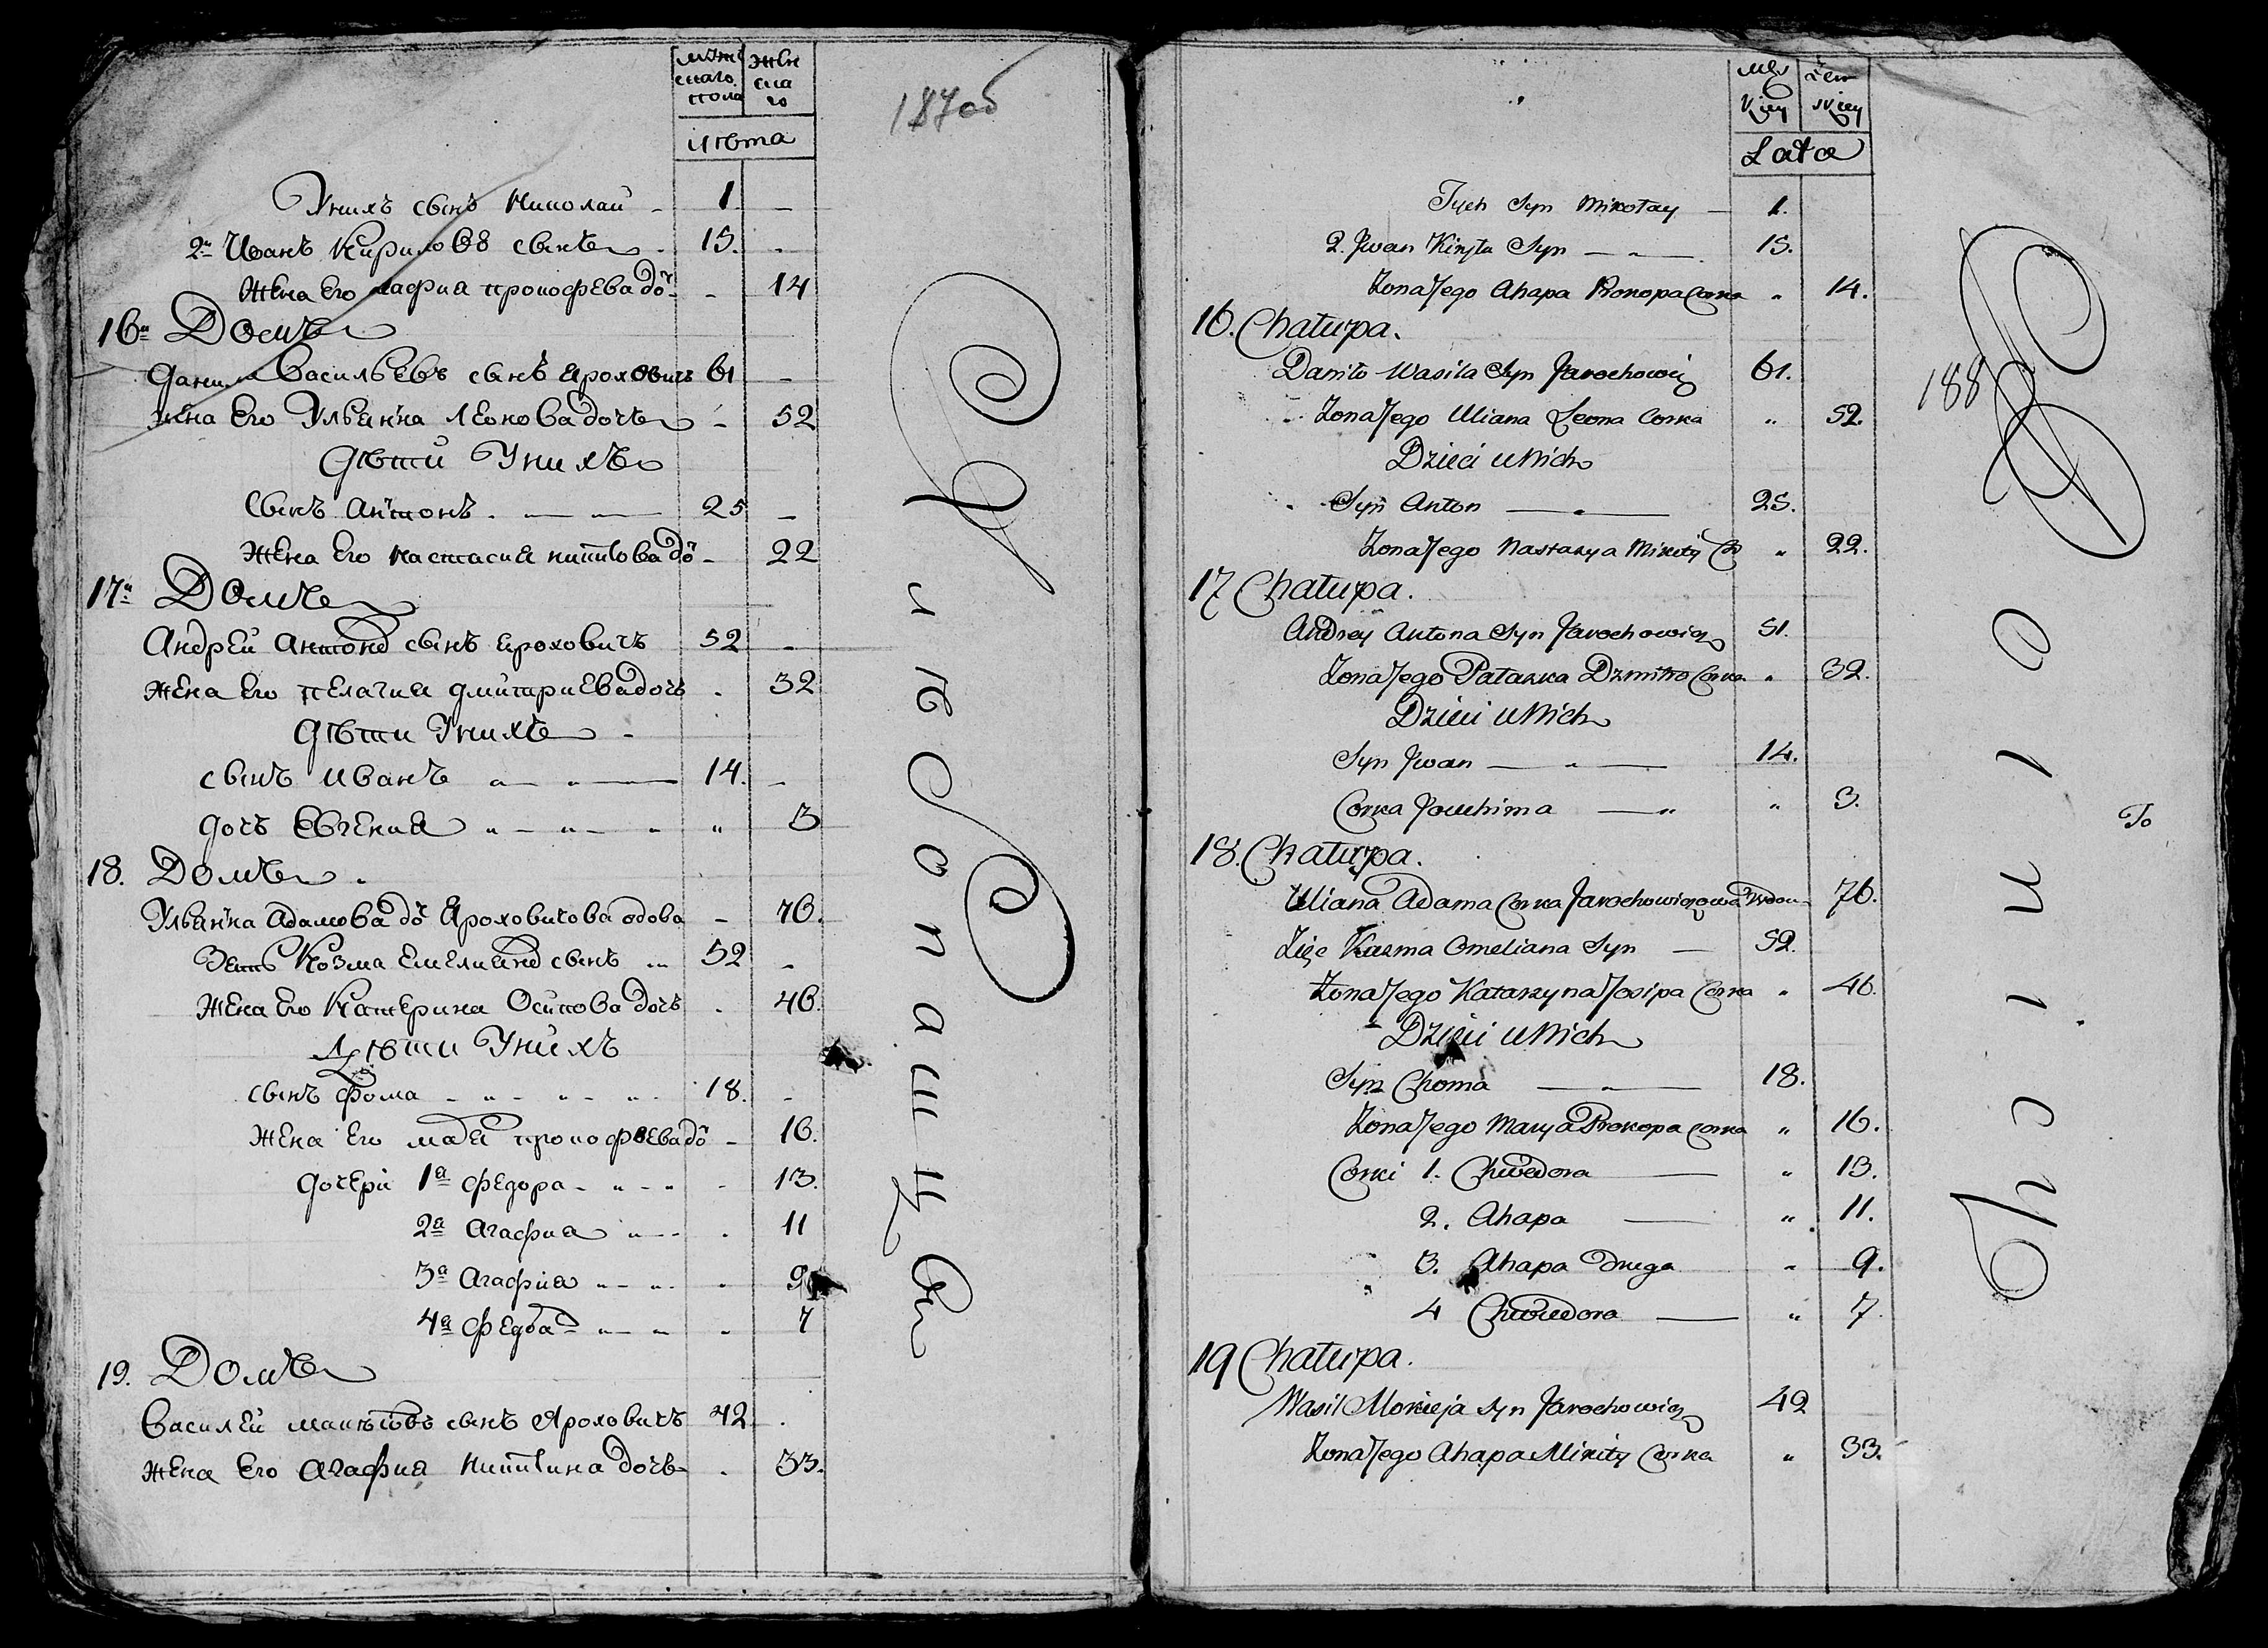 мужескаго пола
женска го
лѣта
187об
Унихъ сынъ Николай - 1 -
2й Иванъ Кирилов сынъ 15. -
Жена Его Агафия прокофева доч - 14
16й Домъ
Данила Васильевъ сынъ Ярохович 61 -
жена Его Ульянна Леонова дочь - 52
Дѣти Унихъ
Сынъ Антонъ 25 -
Жена Его Настасия никитова до - 22
17й Домъ
Андрей Антонов сынъ Ярохович 52 -
жена Его пелагия дмитриева дочь - 32
Дѣти Унихъ
сынъ Иванъ 14. -
дочь Евгения " 3
18. Домъ
Ульянна Адамова до Яроховичова вдова - 76.
Зять Козма Емелиянов сынъ 52 -
Жена Его Катерина Осипова дочь - 46.
Дѣти Унихъ
сынъ Фома 18. -
Жена Его марья прокофеева до - 16.
дочери 1я федора - 13.
2я Агафия - 11
3я Агафия - 9
4я федора - 7
19. Домъ
Василей Сынъ Ярохович 42 -
Жена Его Агафия Никитина дочь - 33.
Męz kiey
Żeń skiey
Lata
188
Tych Syn Mikołay 1.
2. Jwan Kiryła Syn 15.
Żona Jego Ahapa Prokopa Corka " 14.
16. Chałupa.
Daniło Wasila Syn Jarochowicz 61.
Żona Jego Uliana Leona Corka " 52.
Dzieci u Nich
Syn Anton 25.
Żona Jego Nastazya Mikity C " 22.
17 Chałupa.
Andrey Antona Syn Jarochowicz 51.
Żona Jego Pałaszka Dzmitro Corka " 32.
Dzieci u Nich
Syn Jwan 14.
Corka Jouchima " 3.
18. Chałupa.
Uliana Adama Corka Jarochowiczowa Wdowa 76.
Zięc Kuzma Omeliana Syn 52.
Żona Jego Katarzyna Josipa Corka " 46.
Dzieci u Nich
Syn Choma 18.
Żona Jego Marya Prokopa Corka " 16.
Corki 1. Chwedora " 13.
2. Ahapa " 11.
3. Ahapa Druga " 9.
4 Chwiedora " 7.
19 Chałupa.
Wasil Mokieja Syn Jarochowicz 42
Żona Jego Ahapa Mikity Corka " 33.
To